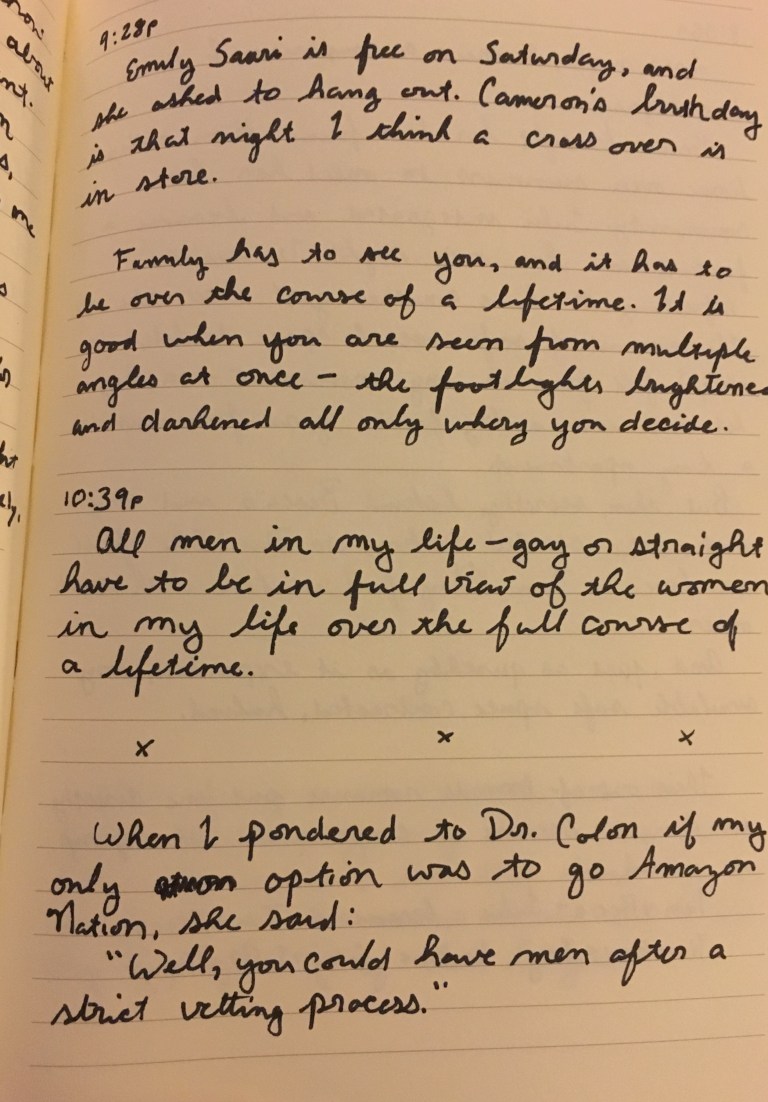 9:28p
Emily Saari is free on Saturday, and
she asked to hang out. Cameron's birthday
is that night I think a cross over is
in store.
Family has to see you, and it has to
be over the course of a lifetime. It is
good when you are seen from multiple
angles at once – the footlights brightened
and darkened all only where you decide.
10:39p
All men in my life – gay or straight
have to be in full view of the women
in my life over the full course of
a lifetime.
x x x
When I pondered to Dr. Colon if my
only option was to go Amazon
Nation, she said:
"Well, you could have men after a
strict vetting process."